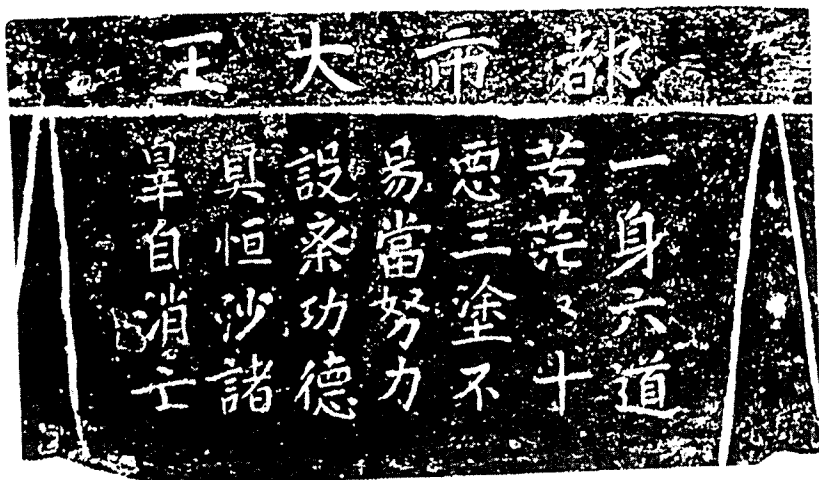 都市大王
一身六道
苦茫々十
悪三塗不
易當努力
設斎功德
具恒沙諸
辠自消亡